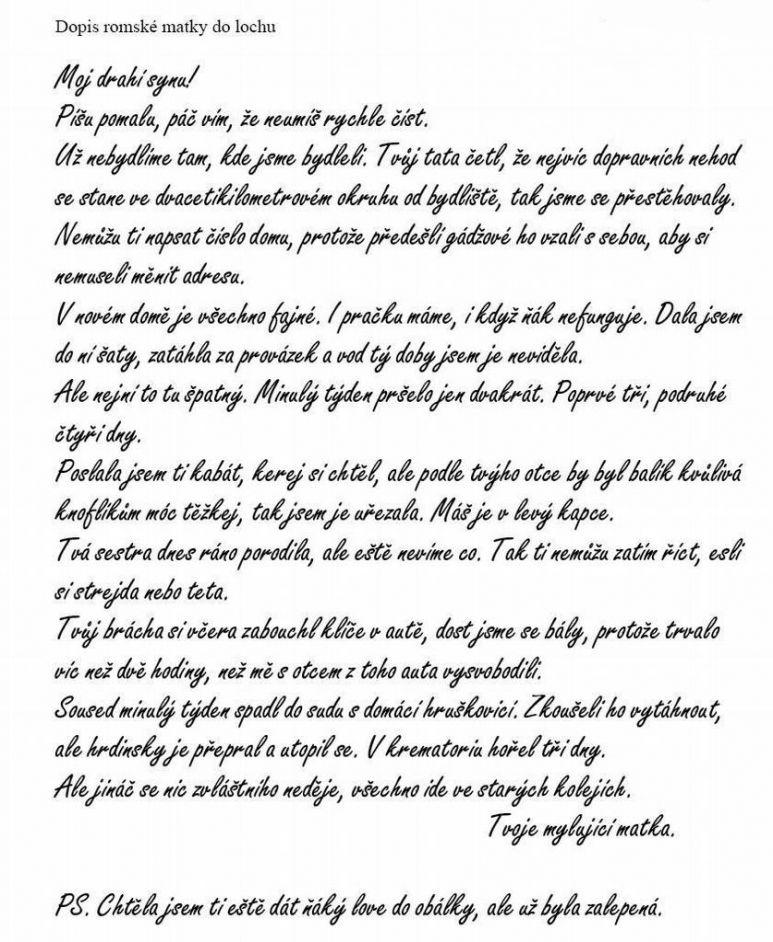 Dopis romské matky do lochu
Moj drahí synu!
Píšu pomalu, páč vím, že neumíš rychle číst.
Už nebydlíme tam, kde jsme bydleli. Tvůj tata četl, že nejvíc dopravních nehod
se stane ve dvacetikilometrovém okruhu od bydliště, tak jsme se přestěhovaly.
Nemůžu ti napsat číslo domu, protože předešlí gádžové ho vzali s sebou, aby si
nemuseli měnit adresu.
V novém domě je všechno fajné. I pračku máme, i když ňák nefunguje. Dala jsem
do ní šaty, zatáhla za provázek a vod tý doby jsem je neviděla.
Ale nejní to tu špatný. Minulý týden pršelo jen dvakrát. Poprvé tři, podruhé
čtyři dny.
Poslala jsem ti kabát, kerej si chtěl, ale podle tvýho otce by byl balík kvůlivá
knoflíkům móc těžkej, tak jsem je uřezala. Máš je v levý kapce.
Tvá sestra dnes ráno porodila, ale eště nevíme co. Tak ti nemůžu zatím říct, esli
si strejda nebo teta.
Tvůj brácha si včera zabouchl klíče v autě, dost jsme se bály, protože trvalo
víc než dvě hodiny, než mě s otcem z toho auta vysvobodili.
Soused minulý týden spadl do sudu s domácí hruškovicí. Zkoušeli ho vytáhnout,
ale hrdinsky je přepral a utopil se. V krematoriu hořel tři dny.
Ale jináč se nic zvláštního neděje, všechno ide ve starých kolejích.
Tvoje mylující matka.
PS. Chtěla jsem ti eště dát ňáký love do obálky, ale už byla zalepená.